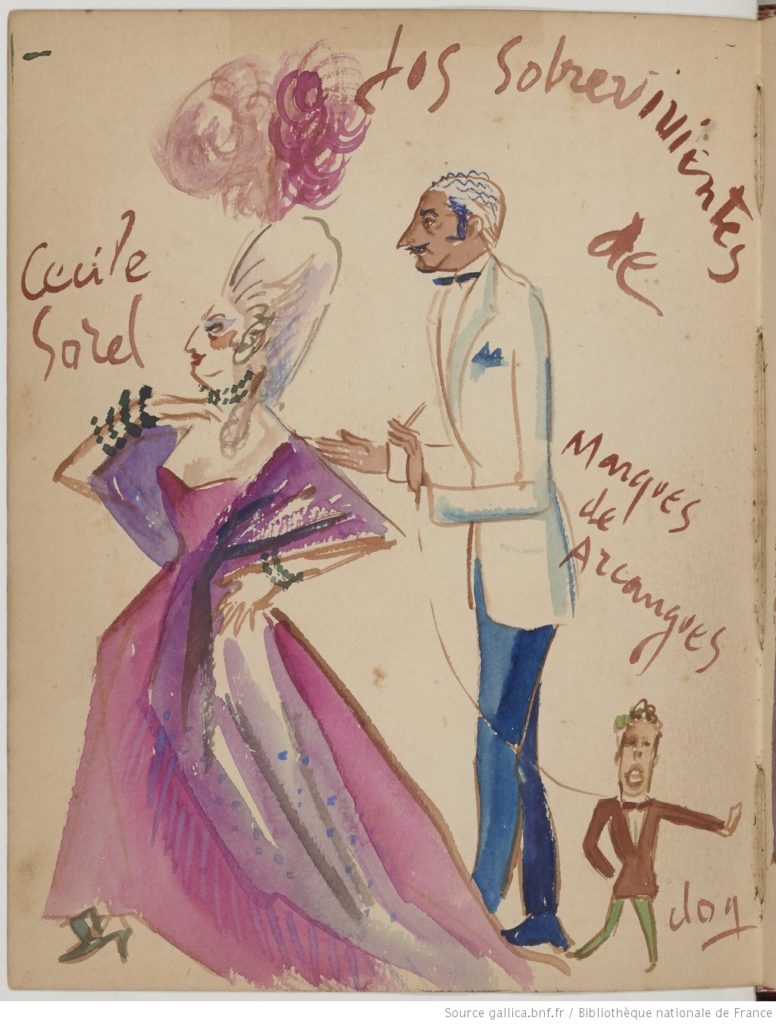 Los sobrevivientes
de
Cecile
Sorel
Marques
de
Arcangues
dog
Source gallica.bnf.fr / Bibliothèque nationale de France